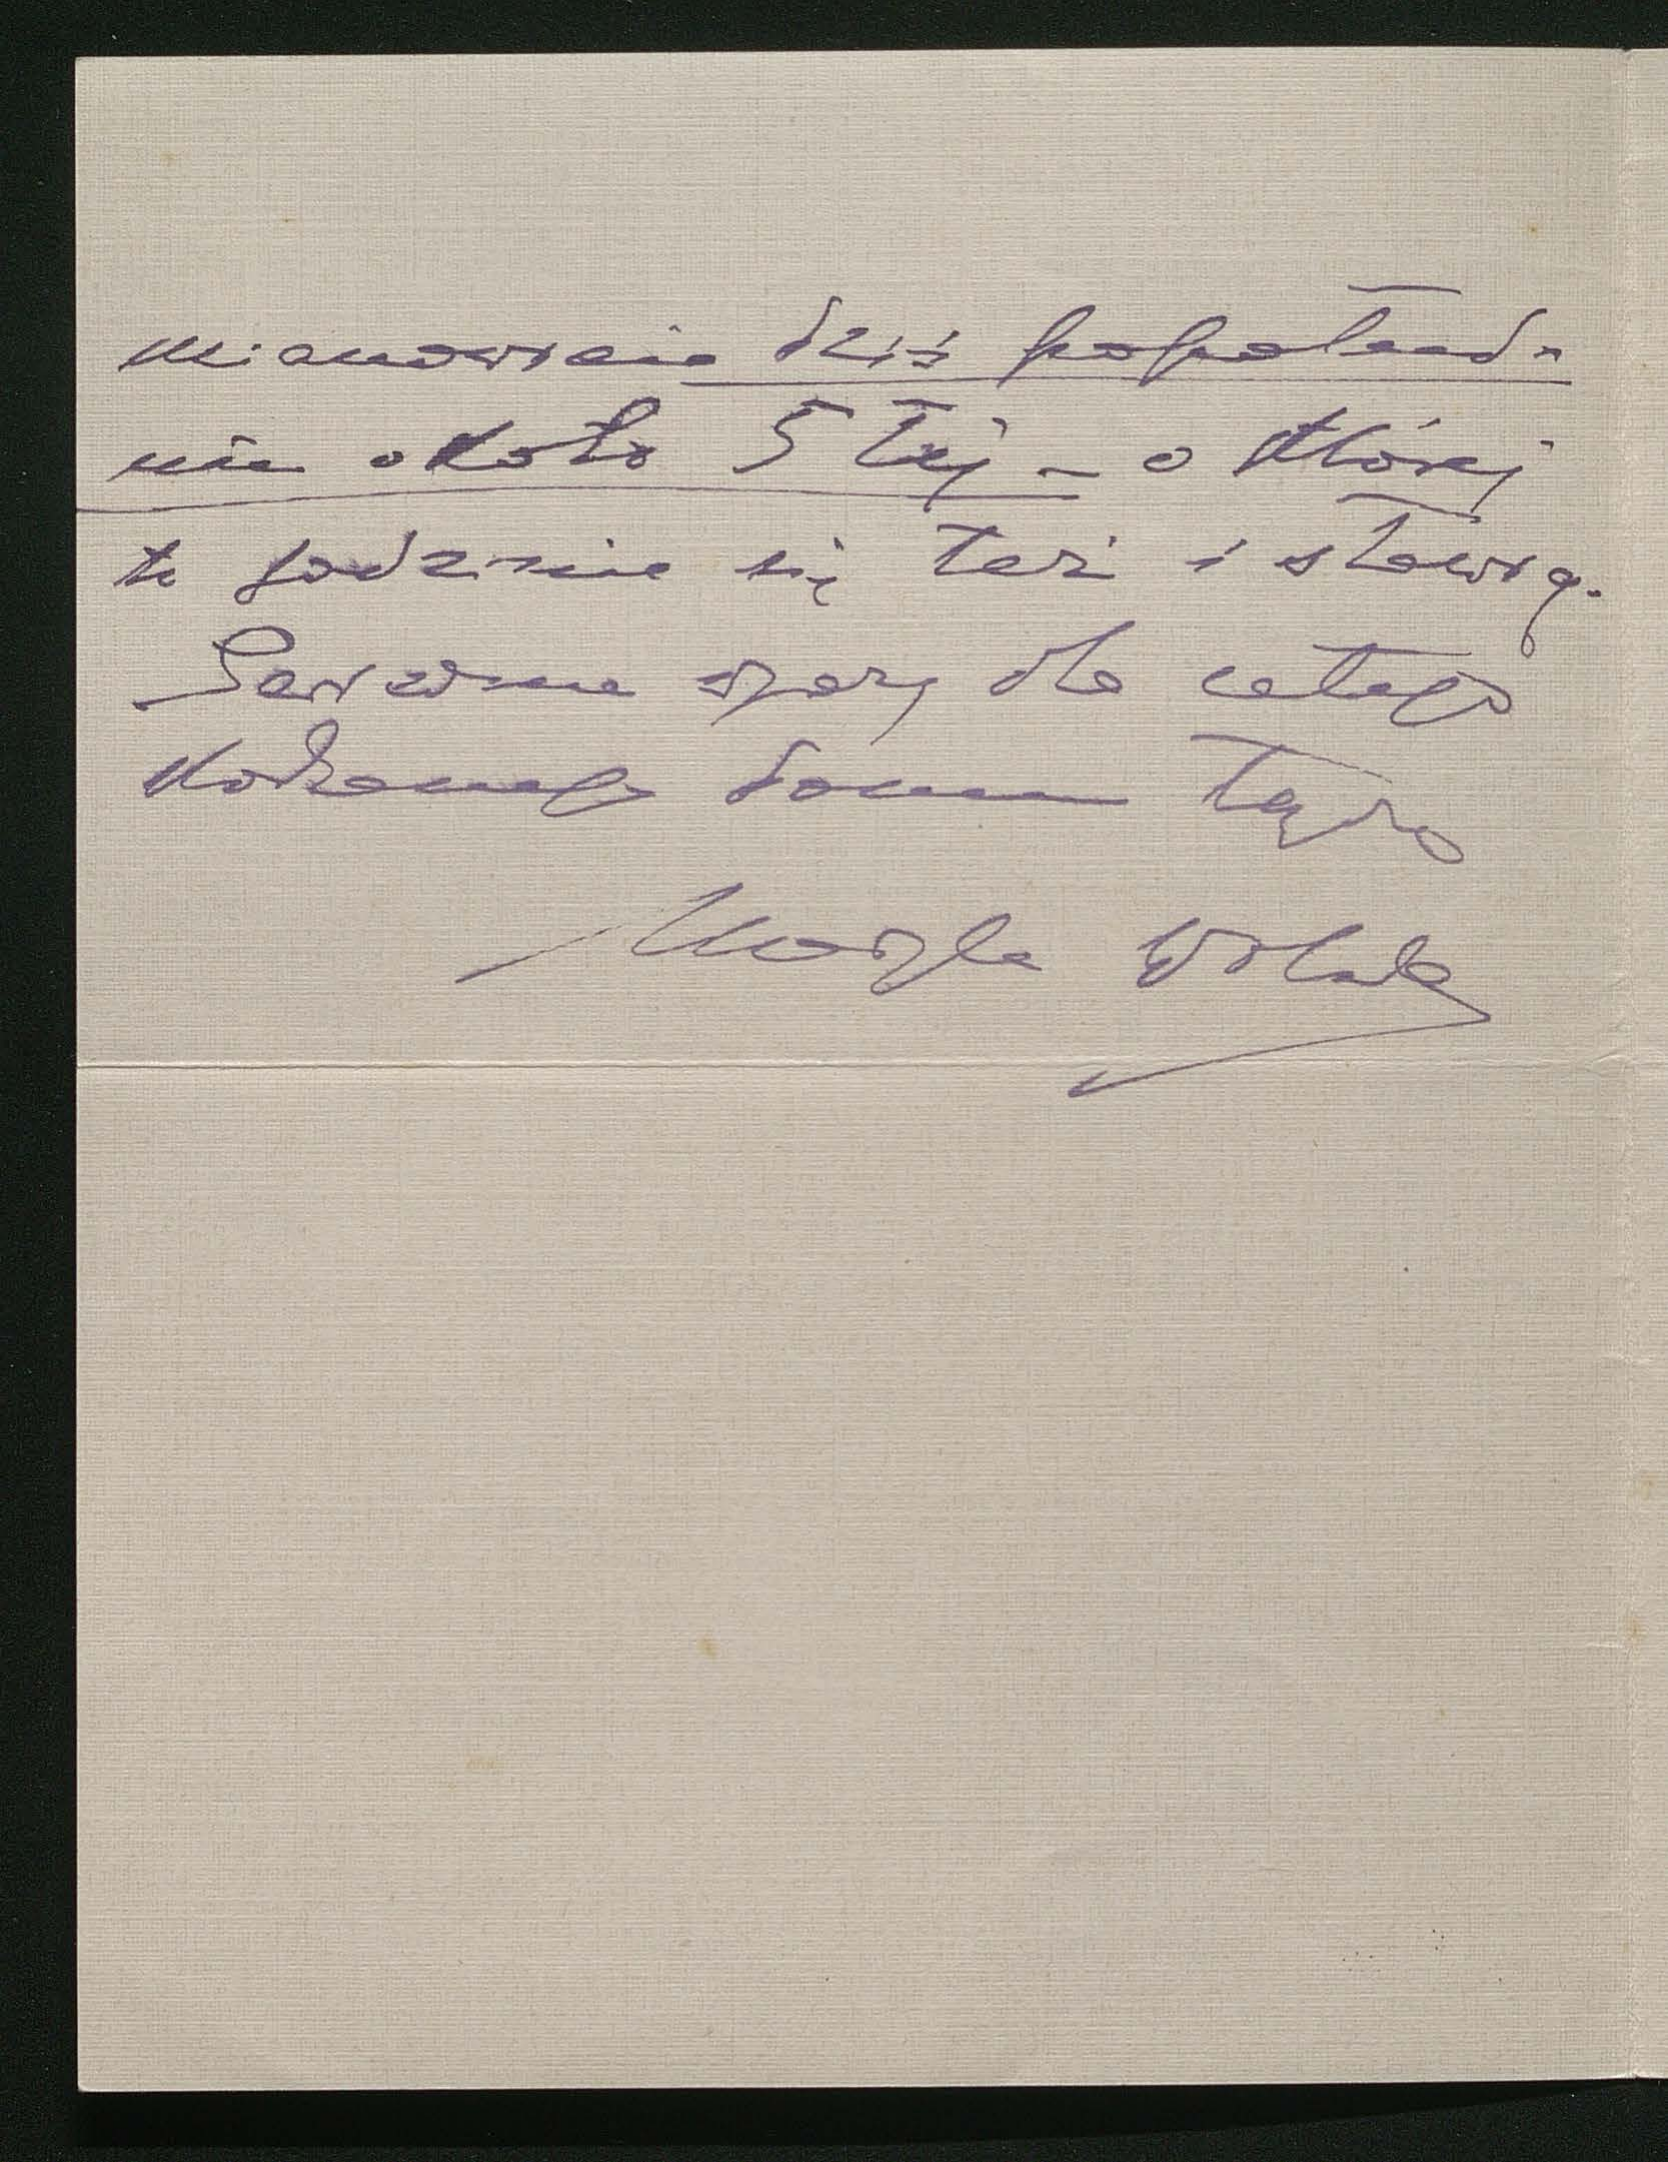 mianowicie dziś popołud-
niu około 5tej – o której
to godzinie się też i stawię.
Serdeczne wyrazy dla całego
kochanego domu